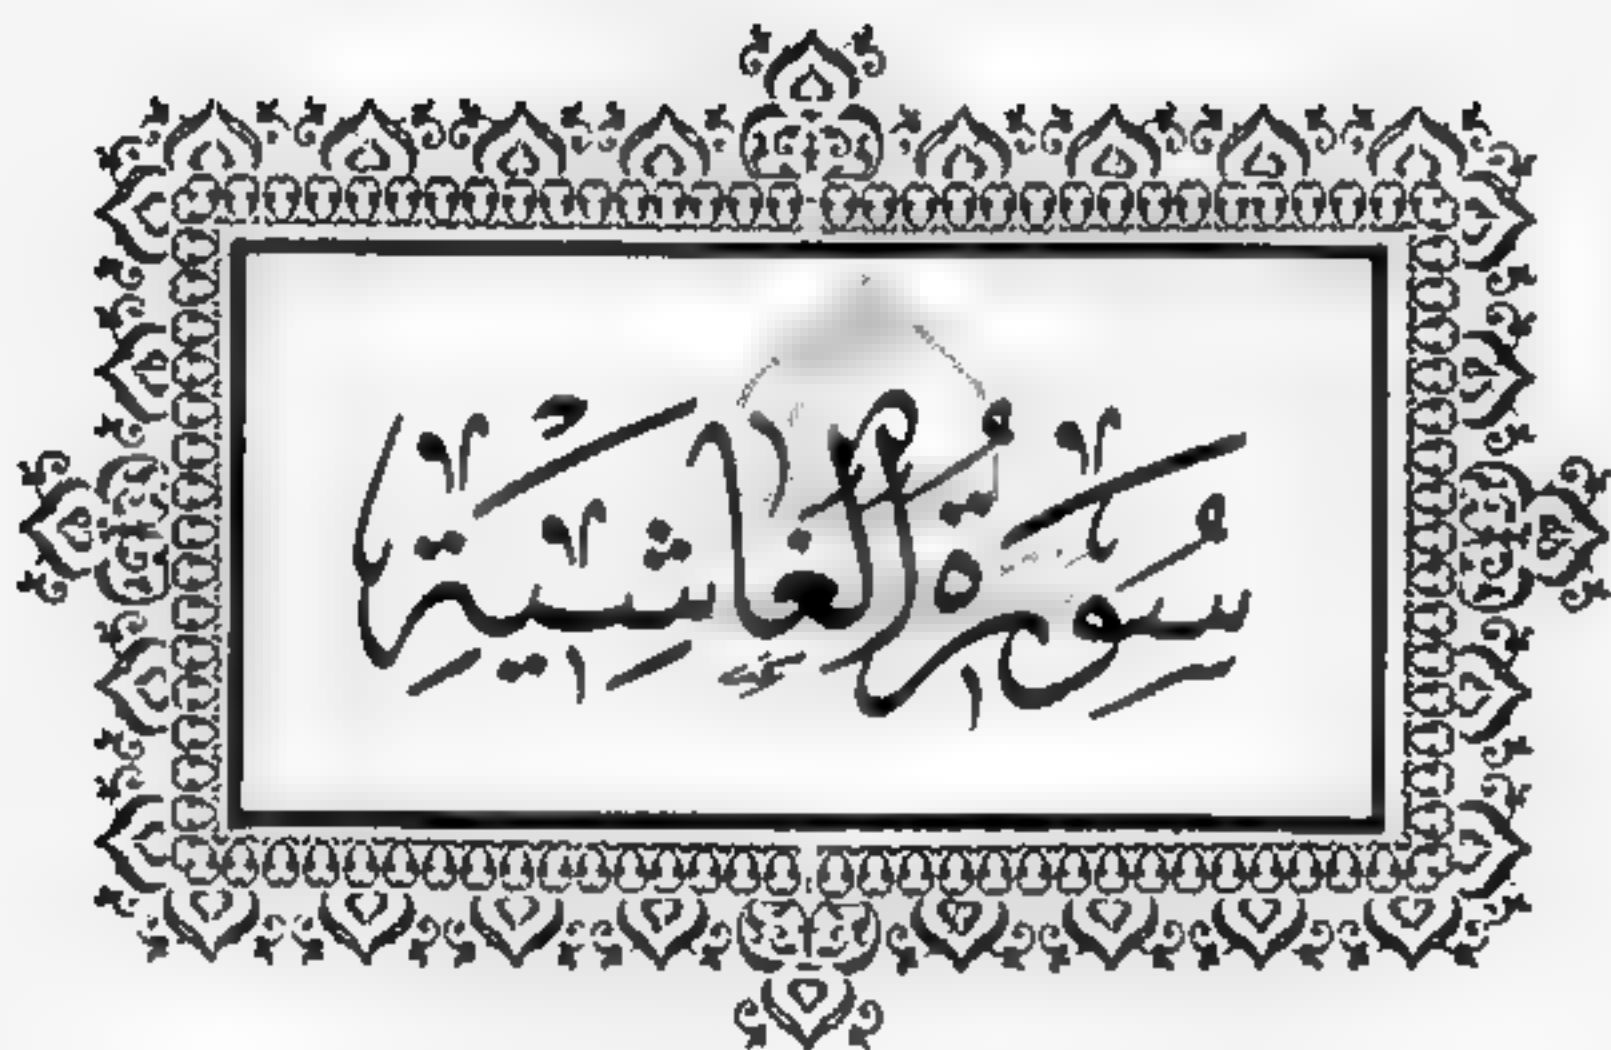 سُورَةُ الْغَاشِيَةِ